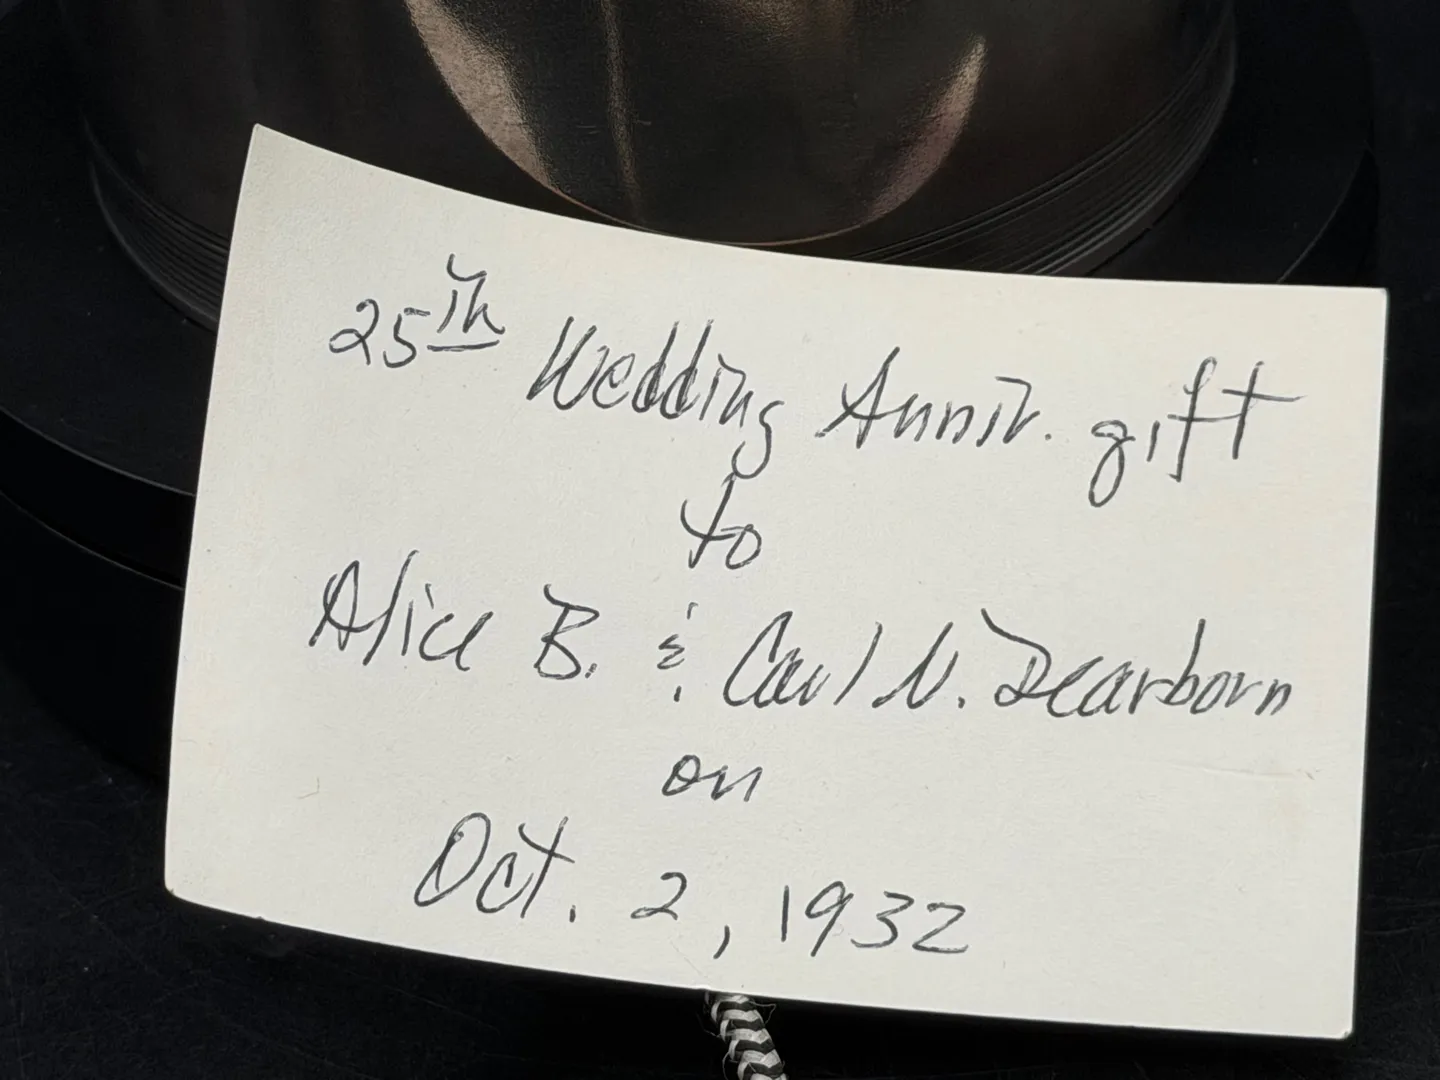 25th Wedding Anniv. gift
to
Alice B. & Carl N. Dearborn
on
Oct. 2, 1932